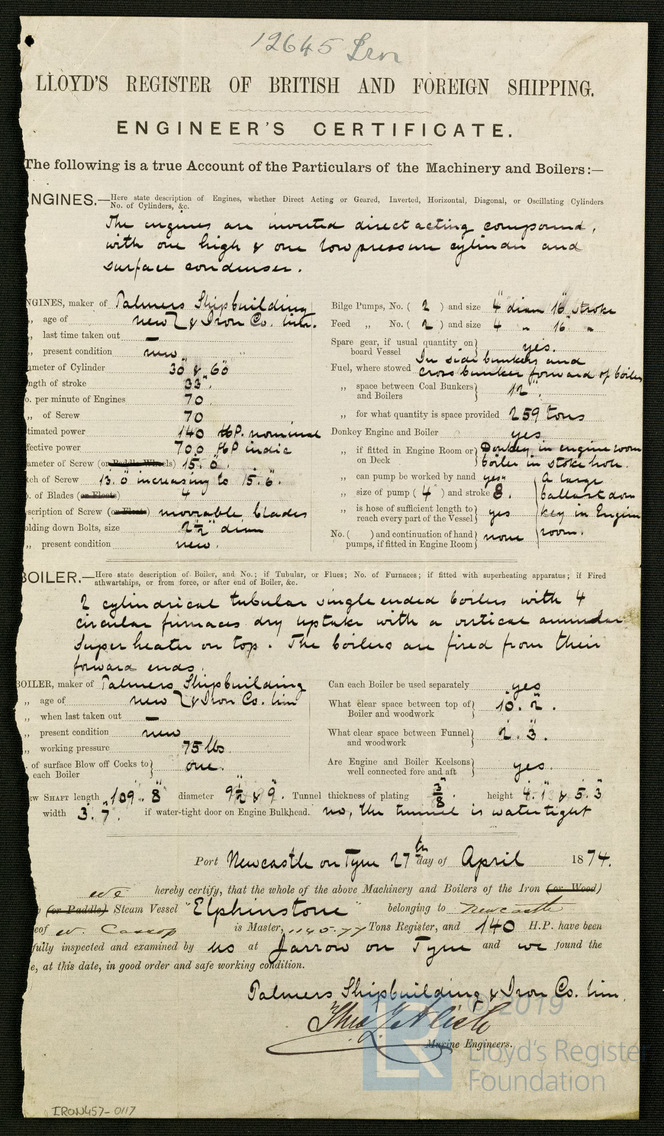 12645 Iron
LLOYD'S REGISTER OF BRITISH AND FOREIGN SHIPPING.
ENGINEER'S CERTIFICATE.
The following is a true Account of the Particulars of the Machinery and Boilers:—
NGINES.—Here state description of Engines, whether Direct Acting or Geared, Inverted, Horizontal, Diagonal, or Oscillating Cylinders
No. of Cylinders, &c.
The engines are inverted direct acting compound,
with one high & one low pressure cylinder and
surface condenser.
NGINES, maker of Palmers Shipbuilding
„ age of new & Iron Co. lim.
„ last time taken out —
„ present condition new
ameter of Cylinder 30" & 60"
ngth of stroke 33".
o. per minute of Engines 70
„ of Screw 70
timated power 140 HP. nominal
ffective power 700 HP indic
ameter of Screw (or Paddle Wheels) 15.0".
tch of Screw 13.0 increasing to 15.6.
o. of Blades (or Floats) 4
scription of Screw (or Floats) moveable blades
olding down Bolts, size 2½" diam
„ present condition new.
Bilge Pumps, No. ( 2 ) and size 4" diam 16" stroke
Feed „ No. ( 2 ) and size 4 " 16 "
Spare gear, if usual quantity on
board Vessel yes.
Fuel, where stowed In side bunkers and
cross bunker forward of boilers
„ space between Coal Bunkers
and Boilers 12".
„ for what quantity is space provided 259 tons
Donkey Engine and Boiler yes
„ if fitted in Engine Room or
on Deck Donkey in engine room
boiler in stoke hole.
„ can pump be worked by hand yes
„ size of pump ( 4" ) and stroke 8".
„ is hose of sufficient length to
reach every part of the Vessel yes
No. ( ) and continuation of hand
pumps, if fitted in Engine Room none
A large
ballast don
key in Engine
room.
BOILER.—Here state description of Boiler, and No.; if Tubular, or Flues; No. of Furnaces; if fitted with superheating apparatus; if Fired
athwartships, or from force, or after end of Boiler, &c.
2 cylindrical tubular single ended boilers with 4
circular furnaces dry uptake with a vertical annular
superheater on top. The boilers are fired from their
forward ends.
BOILER, maker of Palmers Shipbuilding
„ age of new & Iron Co. lim
„ when last taken out —
„ present condition new
„ working pressure 75 lbs.
. of surface Blow off Cocks to
each Boiler one.
Can each Boiler be used separately yes
What clear space between top of
Boiler and woodwork 10.2".
What clear space between Funnel
and woodwork 2.3".
Are Engine and Boiler Keelsons
well connected fore and aft yes.
ew SHAFT length 109.8" diameter 9½" & 9". Tunnel thickness of plating 3/8" height 4.1" & 5.3"
width 3.7". if water-tight door on Engine Bulkhead. no, the tunnel is watertight
Port Newcastle on Tyne 27th day of April 1874.
we hereby certify, that the whole of the above Machinery and Boilers of the Iron (or Wood)
(or Paddle) Steam Vessel "Elphinstone" belonging to Newcastle
eof W. Cassop is Master, 1140.77 Tons Register, and 140 H.P. have been
fully inspected and examined by us at Jarrow on Tyne and we found the
e, at this date, in good order and safe working condition.
Palmers Shipbuilding & Iron Co. lim.
Marine Engineers.
© 2019
LR
Lloyd's Register
Foundation
IRON457-0117